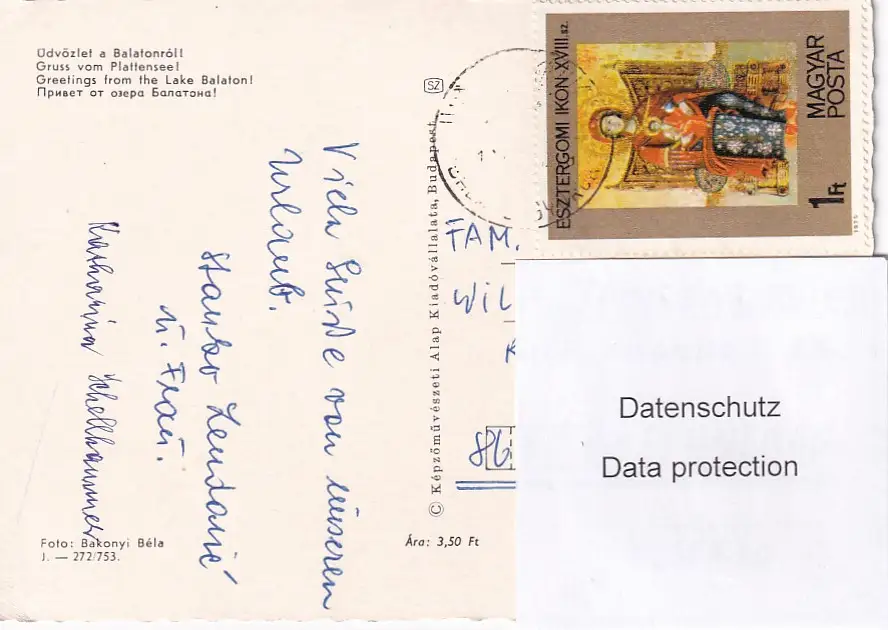 Üdvözlet a Balatonról!
Gruss vom Plattensee!
Greetings from the Lake Balaton!
Привет от озера Балатона!
Viele Grüße von unseren
Urlaub.
Stanko
u. Frau.
Katharina Schellhammer
Foto: Bakonyi Béla
J. — 272/753.
Ára: 3,50 Ft
SZ
© Képzőművészeti Alap Kiadóvállalata, Budapest
ESZTERGOMI IKON·XVIII.sz.
MAGYAR
POSTA
1Ft
1975
FAM.
WIL
K
86
Datenschutz
Data protection